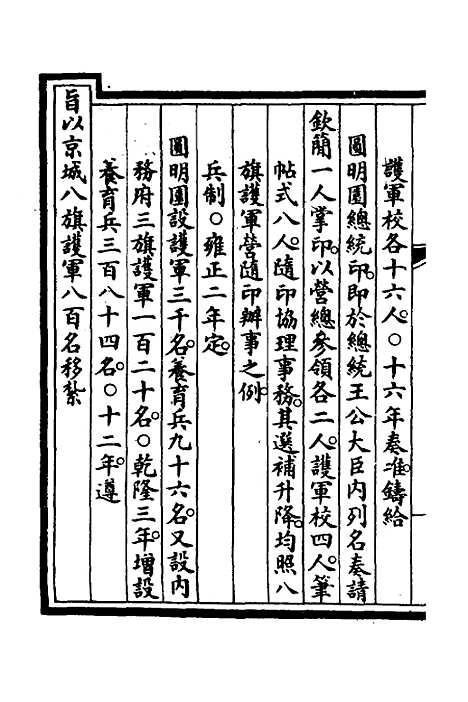 護軍校各十六人○十六年奏准鑄給
圓明園總統印卽於總統王公大臣內列名奏請
欽簡一人掌印以營總參領各二人護軍校四人筆
帖式八人隨印協理事務其選補升降均照八
旗護軍營隨印辦事之例
兵制○雍正二年定
圓明園設護軍三千名養育兵九十六名又設內
務府三旗護軍一百二十名○乾隆三年增設
養育兵三百八十四名○十二年遵
旨以京城八旗護軍八百名移紮